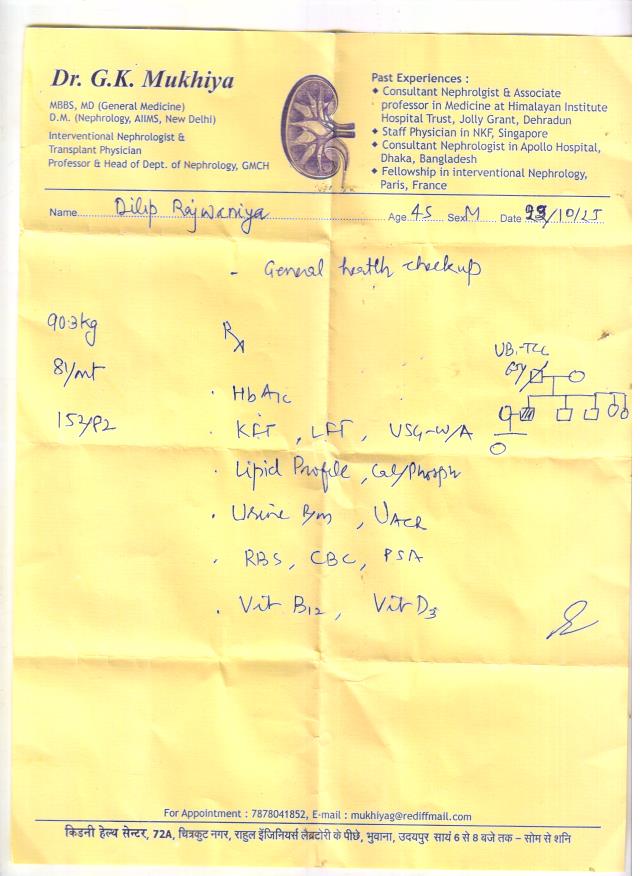 Dr. G.K. Mukhiya
MBBS, MD (General Medicine)
D.M. (Nephrology, AIIMS, New Delhi)
Interventional Nephrologist &
Transplant Physician
Professor & Head of Dept. of Nephrology, GMCH
Past Experiences :
◆ Consultant Nephrolgist & Associate
professor in Medicine at Himalayan Institute
Hospital Trust, Jolly Grant, Dehradun
◆ Staff Physician in NKF, Singapore
◆ Consultant Nephrologist in Apollo Hospital,
Dhaka, Bangladesh
◆ Fellowship in interventional Nephrology,
Paris, France
Name Dilip Rajwaniya Age 45 Sex M Date /10/25
- General health checkup
90.3kg
Rx
UB.-TCC
81/mt
· HbA1c
152/82
· KFT, LFT, USG-W/A
· Lipid Profile, Cal/Phosph
· Urine R/m, UACR
· RBS, CBC, PSA
· Vit B12, Vit D3
For Appointment : 7878041852, E-mail : mukhiyag@rediffmail.com
किडनी हेल्थ सेन्टर, 72A, चित्रकूट नगर, राहुल इंजिनियर्स लैब्रटोरी के पीछे, भुवाना, उदयपुर सायं 6 से 8 बजे तक – सोम से शनि